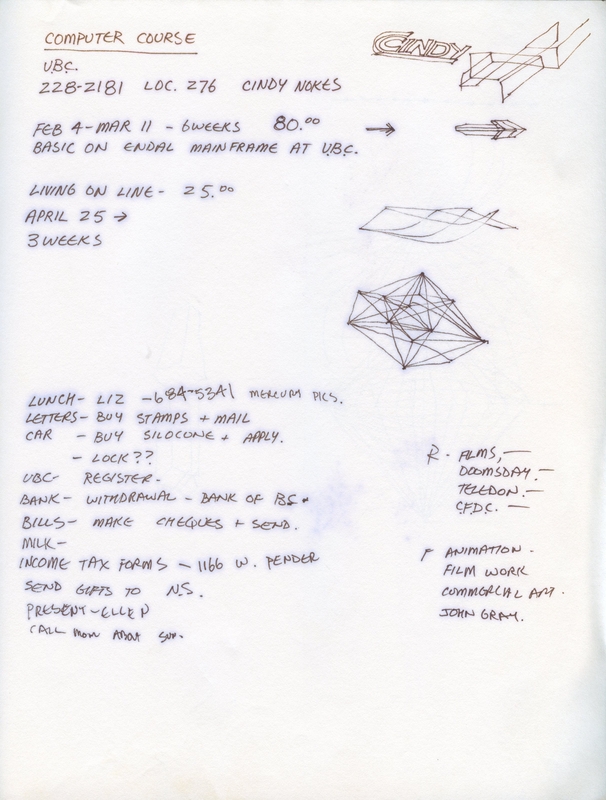 COMPUTER COURSE
CINDY
U.B.C.
228-2181 LOC. 276 CINDY NOKES
FEB 4-MAR 11 - 6 WEEKS 80.00 →
BASIC ON ENDAL MAINFRAME AT U.B.C.
LIVING ON LINE - 25.00
APRIL 25 →
3 WEEKS
LUNCH - LIZ - 684-5341 MERCURY PICS.
LETTERS - BUY STAMPS + MAIL
CAR - BUY SILOCONE + APPLY.
- LOCK??
UBC - REGISTER -
BANK - WITHDRAWAL - BANK OF B.S.
BILLS - MAKE CHEQUES + SEND.
MILK -
INCOME TAX FORMS - 1166 W. PENDER
SEND GIFTS TO N.S.
PRESENT - ELLEN
CALL MOM ABOUT
R. FILMS, —
DOOMSDAY. —
TELEDON. —
C.F.D.C. —
ANIMATION -
FILM WORK
COMMERCIAL ART.
JOHN GRAY.